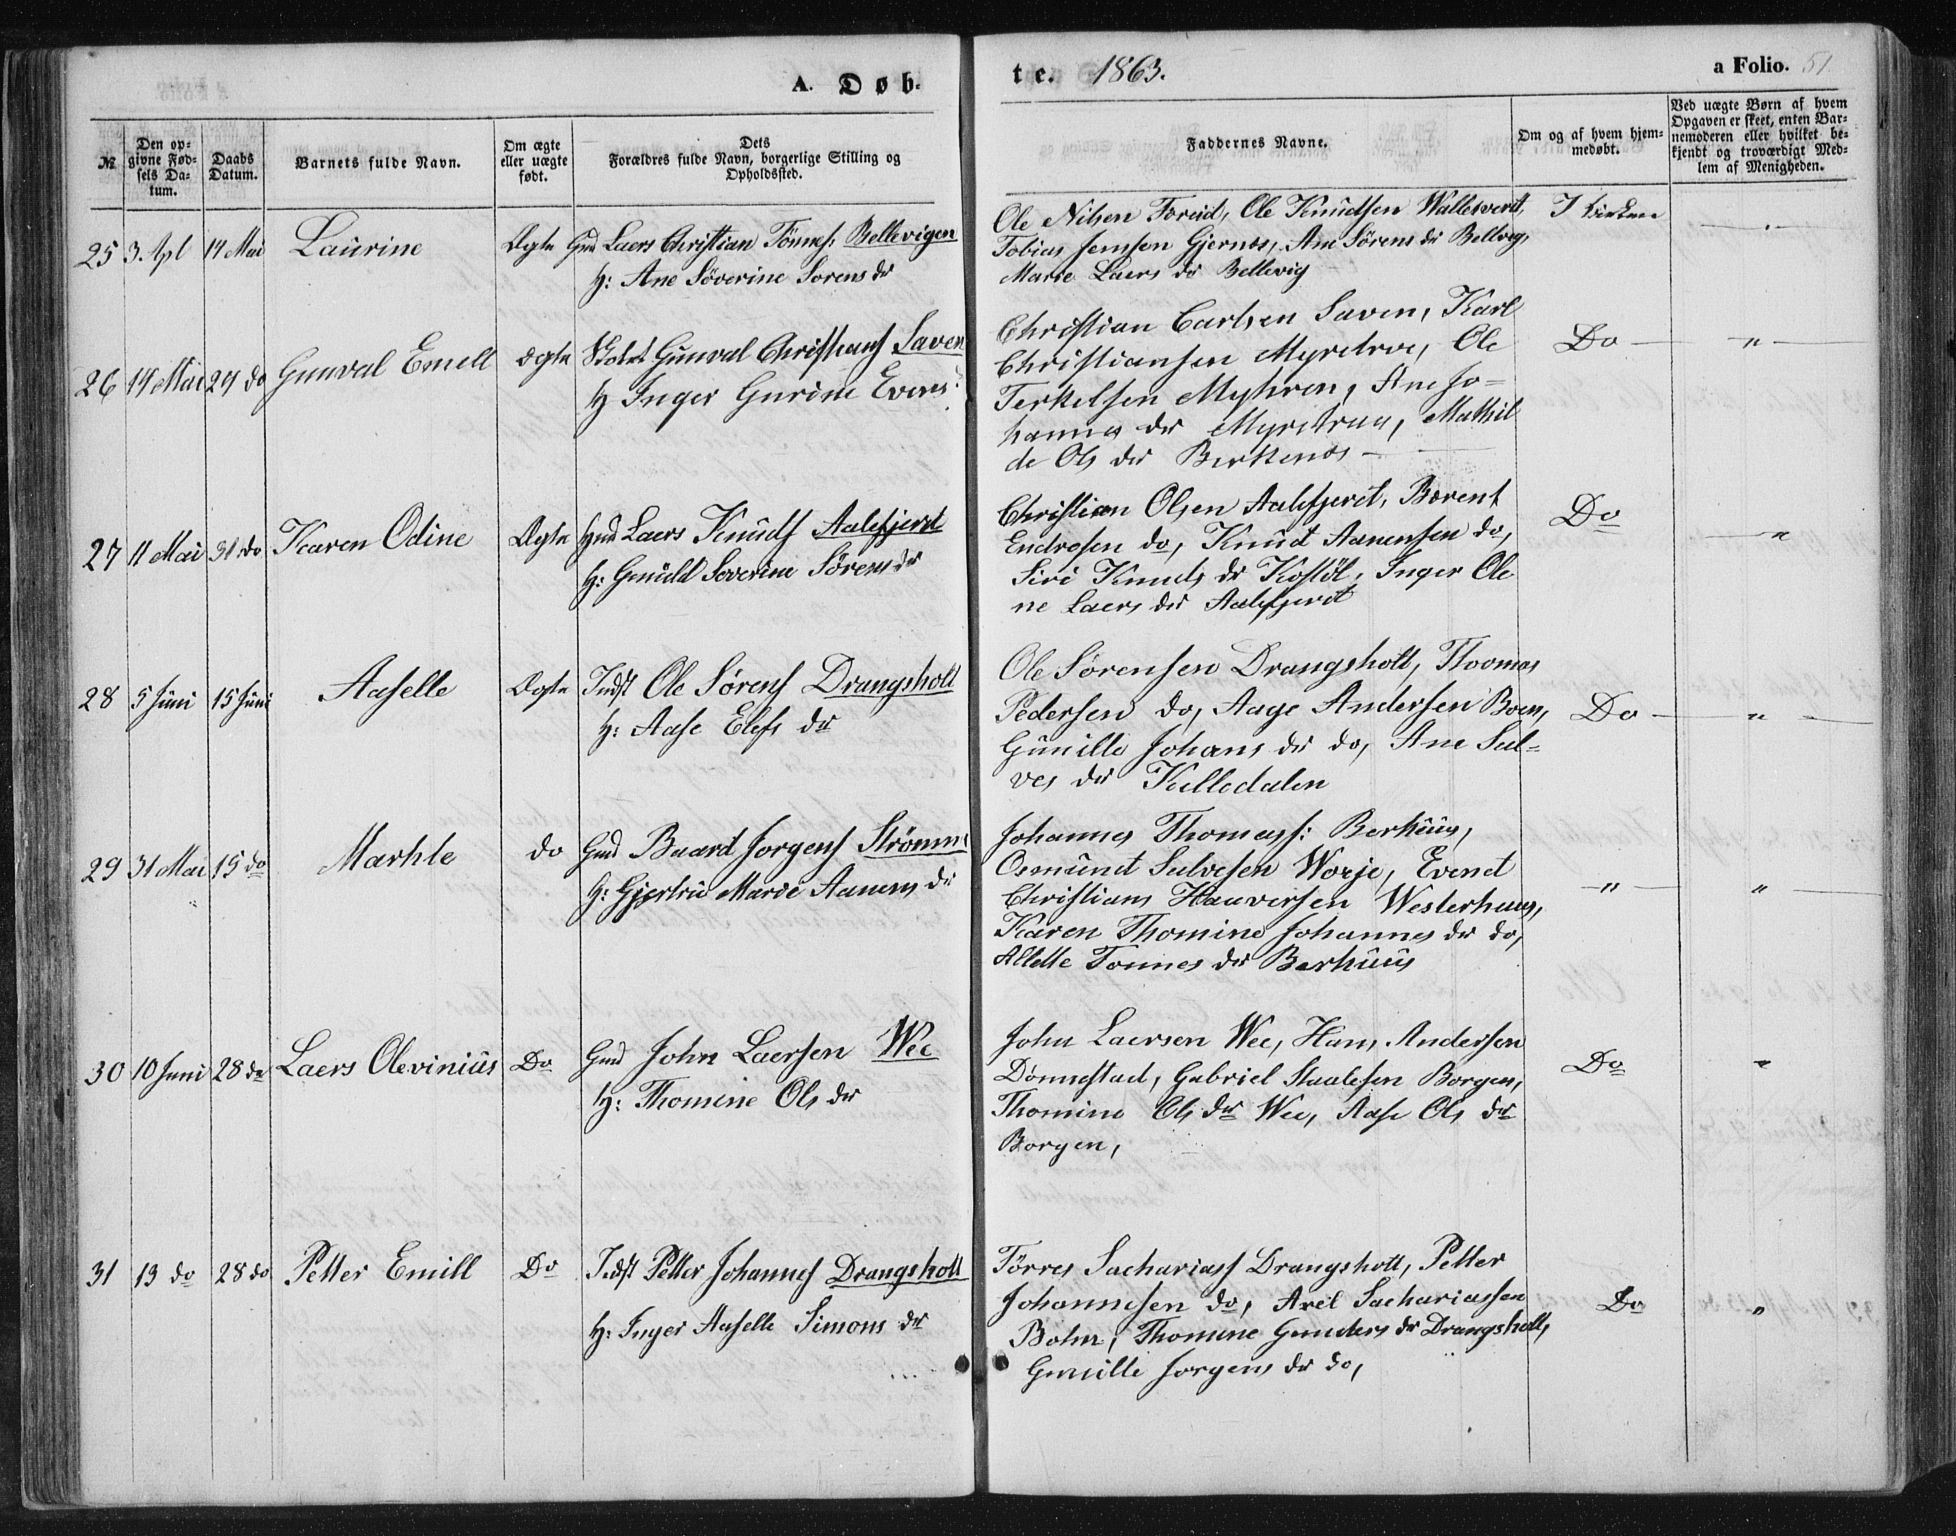 A. Døb-
te. 1863.
a Folio. 51
№
Den op-
givne Fød-
sels Da-
tum.
Daabs
Datum.
Barnets fulde Navn.
Om ægte
eller uægte
født.
Dets
Forældres fulde Navn, borgerlige Stilling og
Opholdssted.
Faddernes Navne.
Om og af hvem hjem-
medøbt.
Ved uægte Børn af hvem
Opgaven er skeet, enten Bar-
nemoderen eller hvilket be-
kjendt og troværdigt Med-
lem af Menigheden.
25 3. Apl 14 Mai Laurine Ægte Gmd Laers Christian Tönnes: Bellevigen
H: Ane Söverine Sorens dr
Ole Nilsen Foreid, Ole Knudsen Wallesverd,
Tobias Jensen Gjernes, Ane Sörens dr Bellvig,
Marie Laers dr Bellevig
I kirken
26 14 Mai 24 do Gunval Emell ægte Gunval Christians Saven
H Inger Gurine Evens
Christian Carlsen Saven, Karl
Christiansen Myretroe, Ole
Terkelsen Myhren, Ane Jo-
hannes dr Myretrae, Mathil
de Ols dr Birkenes
Do "
27 11 Mai 31 do Karen Odine Ægte Gmd Laers Knuds Aalefjerd
H: Gunild Severine Sörens dr
Christian Olsen Aalefjerd, Berent
Endresen do, Knud Aanensen do,
Siri Knuds dr Kostöl, Inger Ole
ne Laers dr Aalefjerd
Do "
28 5 Juni 15 Juni Aaselle Ægte Indst Ole Sörens Drangsholt
H: Aase Elefs dr
Ole Sörensen Drangsholt, Thomas
Pedersen do, Aage Andersen Boen,
Gunille Johans dr do, Ane Sul-
ves dr Kulledalen
Do "
29 31 Mai 15 do Marhte do Gmd Baard Jorgens Strömme
H: Gjertrud Marie Aanens dr
Johannes Thomass: Berhuus,
Osmund Sulvesen Worje, Evend
Christians Haaversen Westerhuus,
Karen Thomine Johannes dr do,
Allette Tonnes dr Berhuus
" "
30 10 Juni 28 do Laers Olevinius Do Gmd John Laersen Wee
H: Thomine Ols dr
John Laersen Wee, Hans Andersen
Dönnestad, Gabriel Staalesen Borgen,
Thomine Ols dr Wee, Aase Ols dr
Borgen,
Do "
31 13 do 28 do Petter Emill Do Indst Petter Johannes Drangsholt
H: Inger Aaselle Simons dr
Törres Sachariass Drangsholt, Petter
Johannesen do, Axel Sachariassen
Bohn, Thomine Gunders dr Drangsholt,
Gunille Jorgens dr do,
Do "